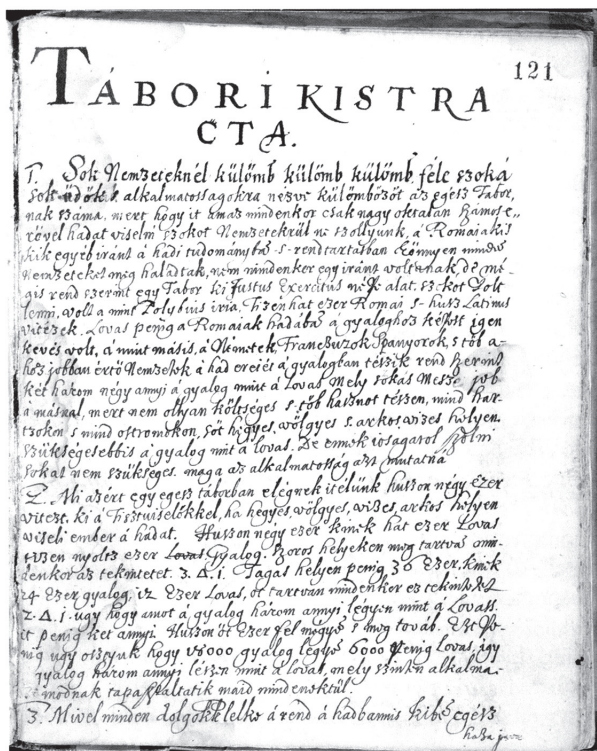 121
TÁBORI KISTRA
CTA.
1. Sok Nemzeteknél külömb külömb külömb féle szoká
sok üdők s alkalmatosságokra nézve külömbözöt az egész Tabor,
nak száma, mert hogy it amaz mindenkor csak nagy oktalan számos e,,
rövel hadat viselni szokot Nemzetekrül ne szollyunk, a Romaiakis
kik egyéb iránt a hadi tudományba s rendtartasban könnyen minden
Nemzeteket meg haladtak, nem mindenkor egy iránt voltanak, de mé-
gis rend szerint egy Tabor ki Justus Exercitus alat szokot volt
lenni, volt a mint Polybius iria, Tizenhat ezer Romai s husz Latinus
vitézek. Lovas penig a Romaiak hadába a gyaloghoz képest igen
kevés volt, a mint másis, a Németek, Francßuzok Spanyorok, s töb a-
hoz jobban értö Nemzetek a had ereiét a gyalogban tészik rend szerint
két három négy annyi a gyalog mint a Lovas Mely sokás Messze job
a másnal, mert nem ollyan költséges s töb hasznot tészen, mind har-
czokon s mind ostromokon, söt hegyes, wölgyes s arkos, vizes helyen
szükségesebbis a gyalog mint a lovas. De ennek iosagarol szolni
sokat nem szükséges. maga az alkalmatosság azt mutatná
2. Mi azért egy egesz táborban elégnek itélünk huszon négy ezer
vitézt, ki a Tisztviselökkel, ha hegyes, wölgyes, vizes, arkos helyen
viseli ember a hadat. Huszon négy ezer kinek hat ezer Lovas
tizen nyoltz ezer Lovas Gyalog. szoros helyeken meg tartvan min-
denkor az tekintetet. 3. Δ. 1. Tagas helyen penig 36 Ezer, kinek
24 Ezer gyalog, 12 Ezer Lovas, öt tartvan mindenkor ez tekintetet
2. Δ. 1. ugy hogy amot a gyalog három annyi légyen mint a Lovass
it penig ket annyi. Huszon öt Ezer fel s meg továb. Ezt Pe-
nig ugy oszszuk hogy 18000 gyalog légyen 6000 Penig Lovas, igy
gyalog három annyi lészen mint a lovas, mely szintén alkalma-
modnak maid mindenektül.
3. Mivel minden lelke a rend a hadbannis egész